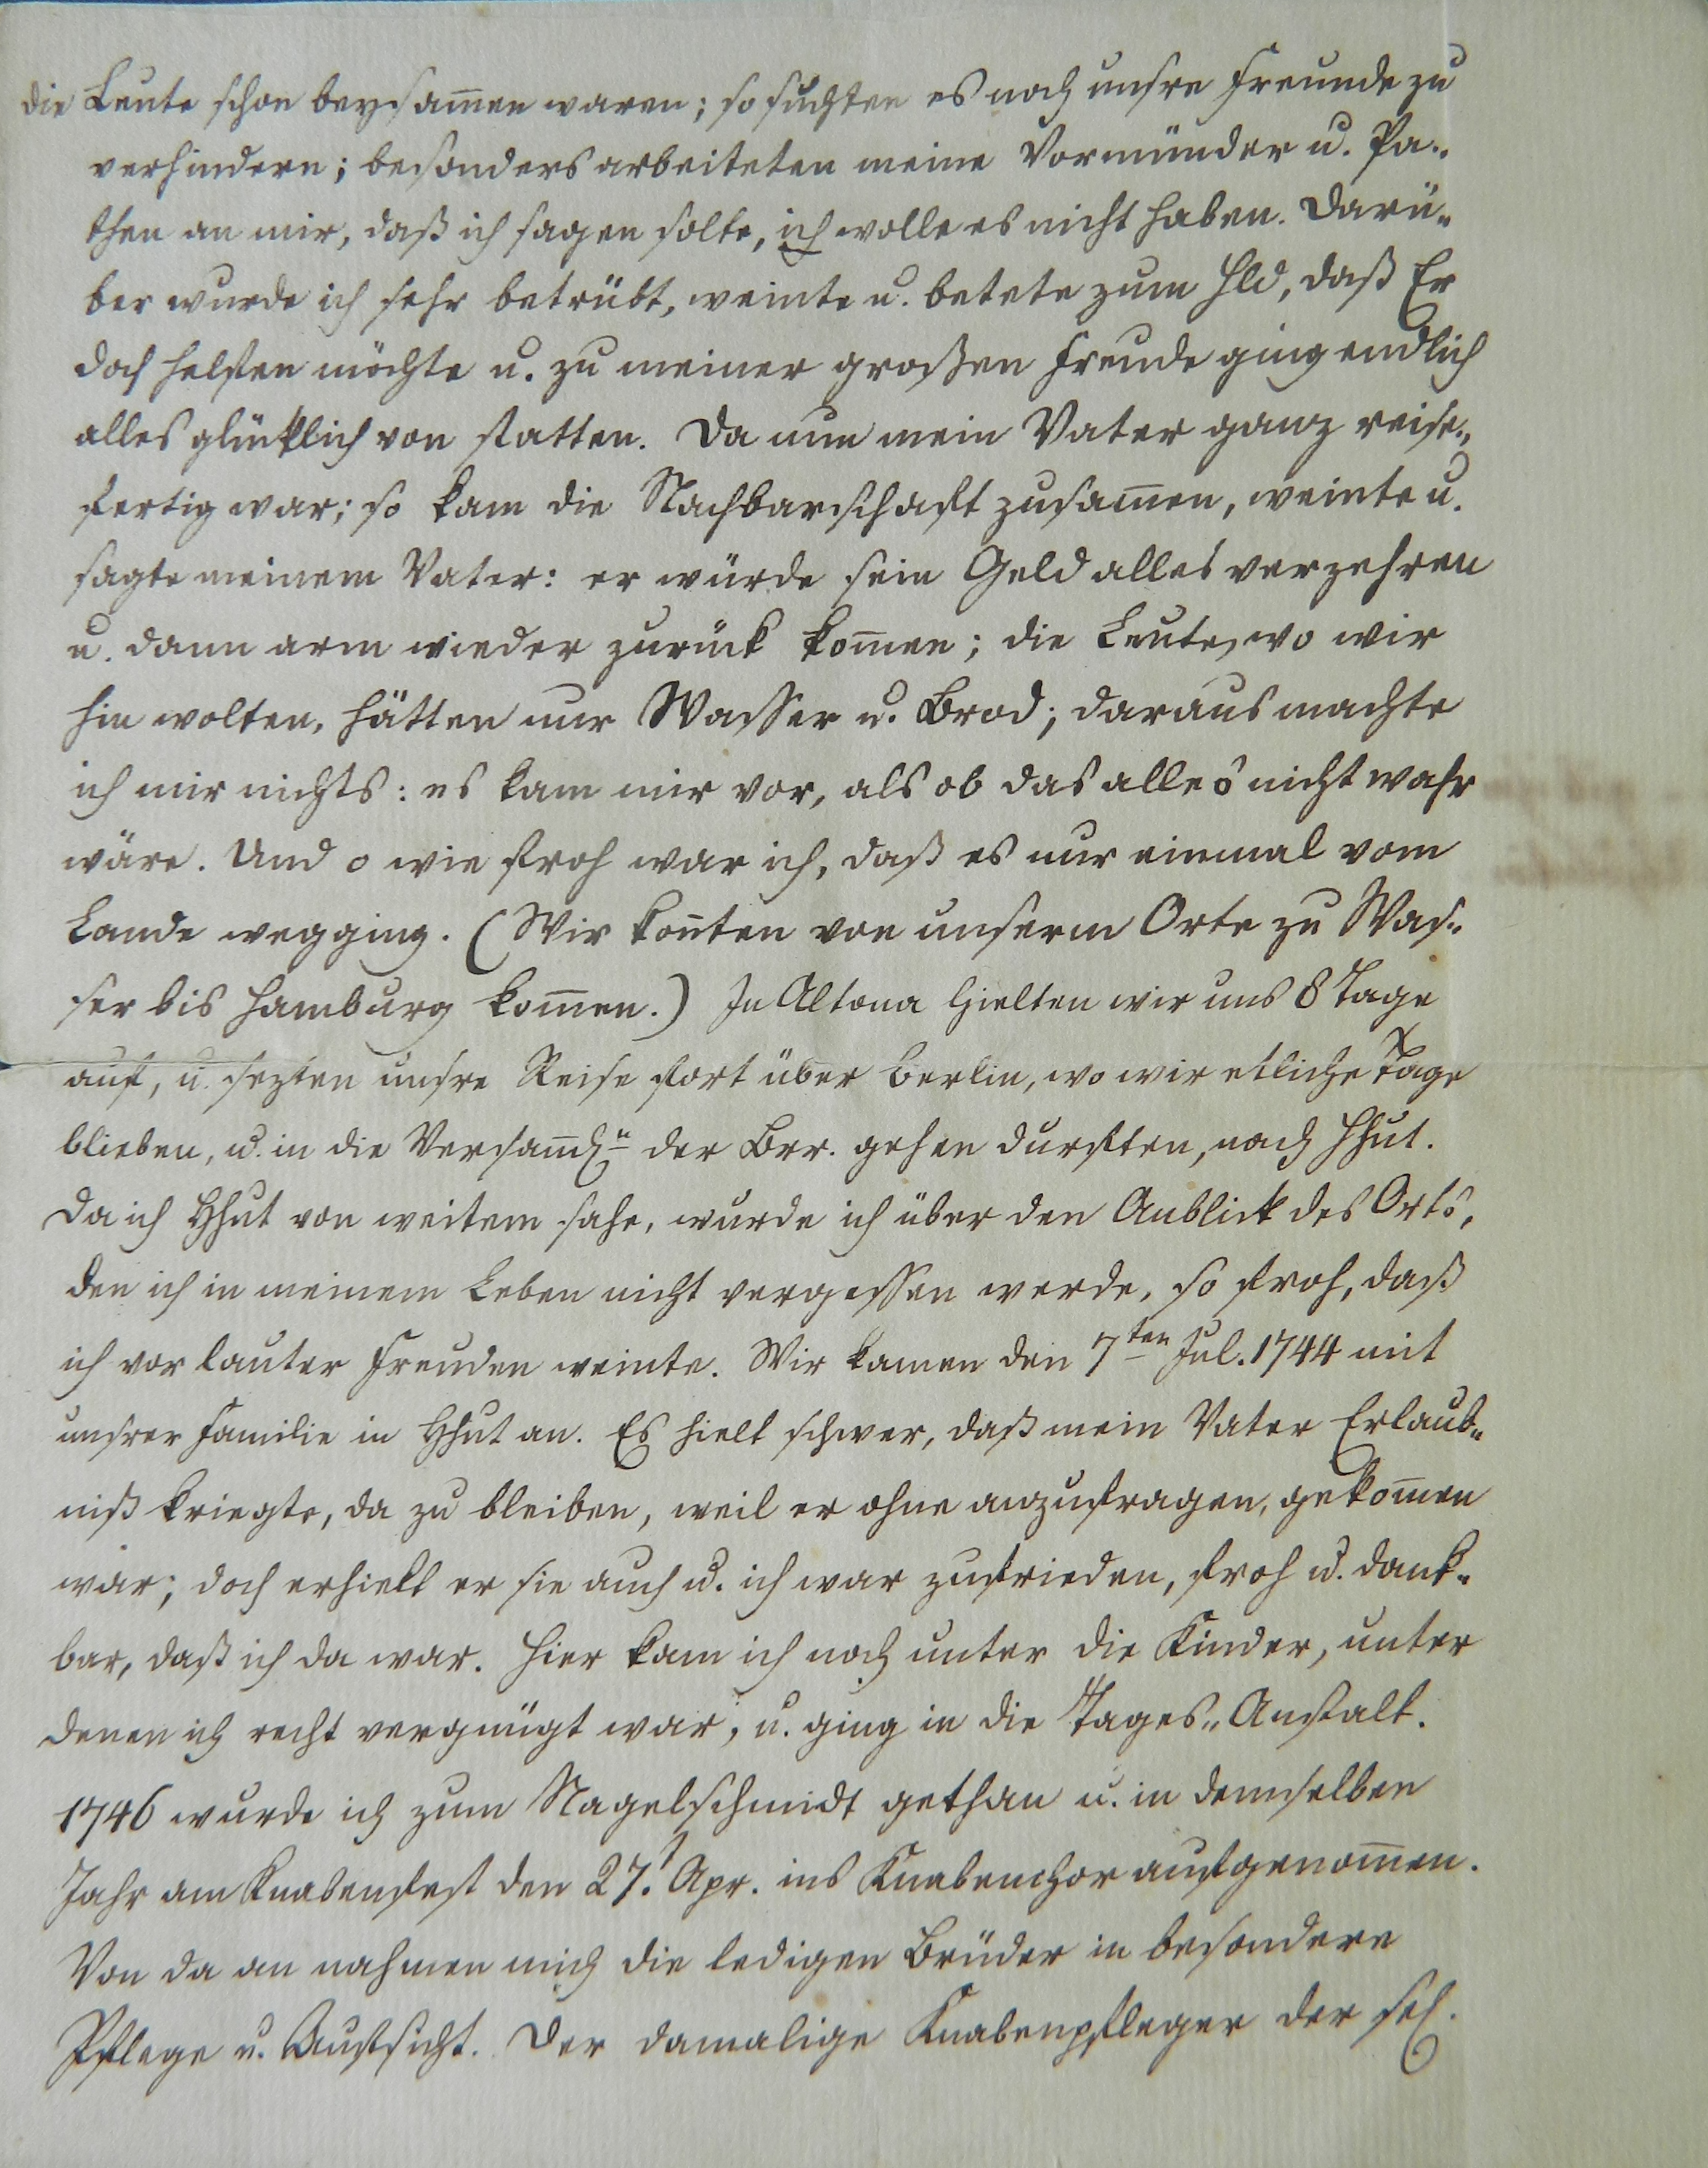 die Leute schon beysam̅en waren; so suchten es noch unsre Freunde zu
verhindern; besonders arbeiteten meine Vormünder u. Pa-
then an mir, daß ich sagen solte, ich wolle es nicht haben. Darü-
ber wurde ich sehr betrübt, weinte u. betete zum Hld, daß Er
doch helfen möchte u. zu meiner großen Freude ging endlich
alles glücklich von statten. Da nun mein Vater ganz reise-
fertig war; so kam die Nachbarschaft zusam̅en, weinte u.
sagte meinem Vater: er würde sein Geld alles verzehren
u. dann arm wieder zurück kom̅en; die Leute, wo wir
hin wolten, hätten nur Wasser u. Brod; daraus machte
ich mir nichts: es kam mir vor, als ob das alles nicht wahr
wäre. Und o wie froh war ich, daß es nur einmal vom
Lande wegging. (Wir kon̅ten von unserm Orte zu Was-
ser bis Hamburg kom̅en.) In Altona hielten wir uns 8 Tage
auf, u. sezten unsre Reise fort über Berlin, wo wir etliche Tage
blieben, u. in die Versam̅l̅n der Brr. gehen durften, nach Hhut.
Da ich Hhut von weitem sahe, wurde ich über den Anblick des Orts,
den ich in meinem Leben nicht vergessen werde, so froh, daß
ich vor lauter Freuden weinte. Wir kamen den 7ten Jul. 1744 mit
unsrer Familie in Hhut an. Es hielt schwer, daß mein Vater Erlaub-
niß kriegte, da zu bleiben, weil er ohne anzufragen, gekom̅en
war; doch erhielt er sie auch u. ich war zufrieden, froh u. dank-
bar, daß ich da war. Hier kam ich noch unter die Kinder, unter
denen ich recht vergnügt war, u. ging in die Tages-Anstalt.
1746 wurde ich zum Nagelschmidt gethan u. in demselben
Jahr am Knabenfest den 27. Apr. ins Knabenchor aufgenom̅en.
Von da an nahmen mich die ledigen Brüder in besondere
Pflege u. Aufsicht. Der damalige Knabenpfleger der sel.